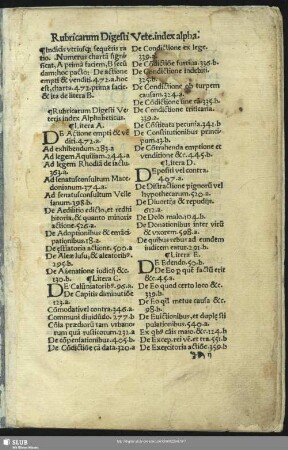 Rubricarum Digesti Vete. index alpha.
¶ Indicis vtriusq; sequētis ra
tio. Numerus chartā signi
ficat. A primā faciem, B secū
dam: hoc pacto: De actione
empti & venditi. 472.a. hoc
est, charta .472. prima facie,
& ita de litera B.
¶ Rubricarum Digesti Ve
teris index Alphabeticus.
¶ Litera A.
DE Actione empti & vē
diti. 472.a
Ad exhibendum. 283.a
Ad legem Aquiliam. 244.a
Ad legem Rhodiā de iactu
363.a
Ad senatusconsultum Mace
donianum. 374.a
Ad senatusconsultum Velle
ianum. 398.b
De Aedilitio edicto, et redhi
bitoria, & quanto minoris
actione. 526.a
De Adoptionibus & emāci
pationibus. 18.a
De estimatoria actione. 500.a
De Alea lusu, & aleatorib⁹.
295.b
De Alienatione iudicij &c.
130.b
¶ Litera C.
DE Calūniatorib⁹. 96.a
De Capitis diminutiōe
123.a
Cōmodati vel contra. 346.a
Communi diuidūdo. 277.b
Cōia praediorū tam vrbano
rum quā rusticorum. 231.a
De cōpensationibus. 405.b
De Cōdictiōe cā data. 320.a
De Condictione ex lege.
339.a
De Cōdictiōe furtiua. 335.b
De Condictione indebiti.
325.b
De Condictione ob turpem
causam. 324.a
De Cōdictione sine cā. 335.b
De Condictione triticaria.
339.a
De Cōstituta pecunia. 341.b
De Constitutionibus princi
pum. 13.b
De Contrahenda emptione et
venditione &c. 445.b
¶ Litera D.
DEpositi vel contra.
407.a
De Distractione pignorū vel
hypothecarum. 520.a
De Diuortijs & repudijs.
612.a
De Dolo malo. 104.b
De Donationibus inter virū
& vxorem. 598.a
De quibus rebus ad eundem
iudicem eatur. 291.b
¶ Litera E.
DE Edendo. 50.b
De Eo p quē factū erit
&c. 45.a
De Eo quod certo loco &c.
339.b
De Eo qd metus causa &c.
98.b
De Euictionibus, et duplę sti
pulationibus. 540.a
Ex qb⁹ cāis maio. &c. 124.b
De Excep. rei vē. et tra. 551.b
De Exercitoria actiōe. 359.b
SLUB
Wir führen Wissen.